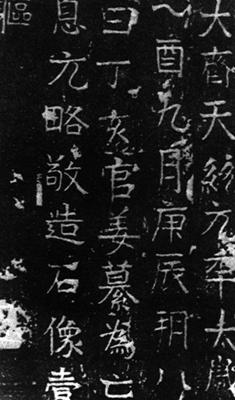 大齊天統元年太歲
乙酉九月庚辰朔八
日丁亥官姜纂為亡
息元略敬造石像壹
軀